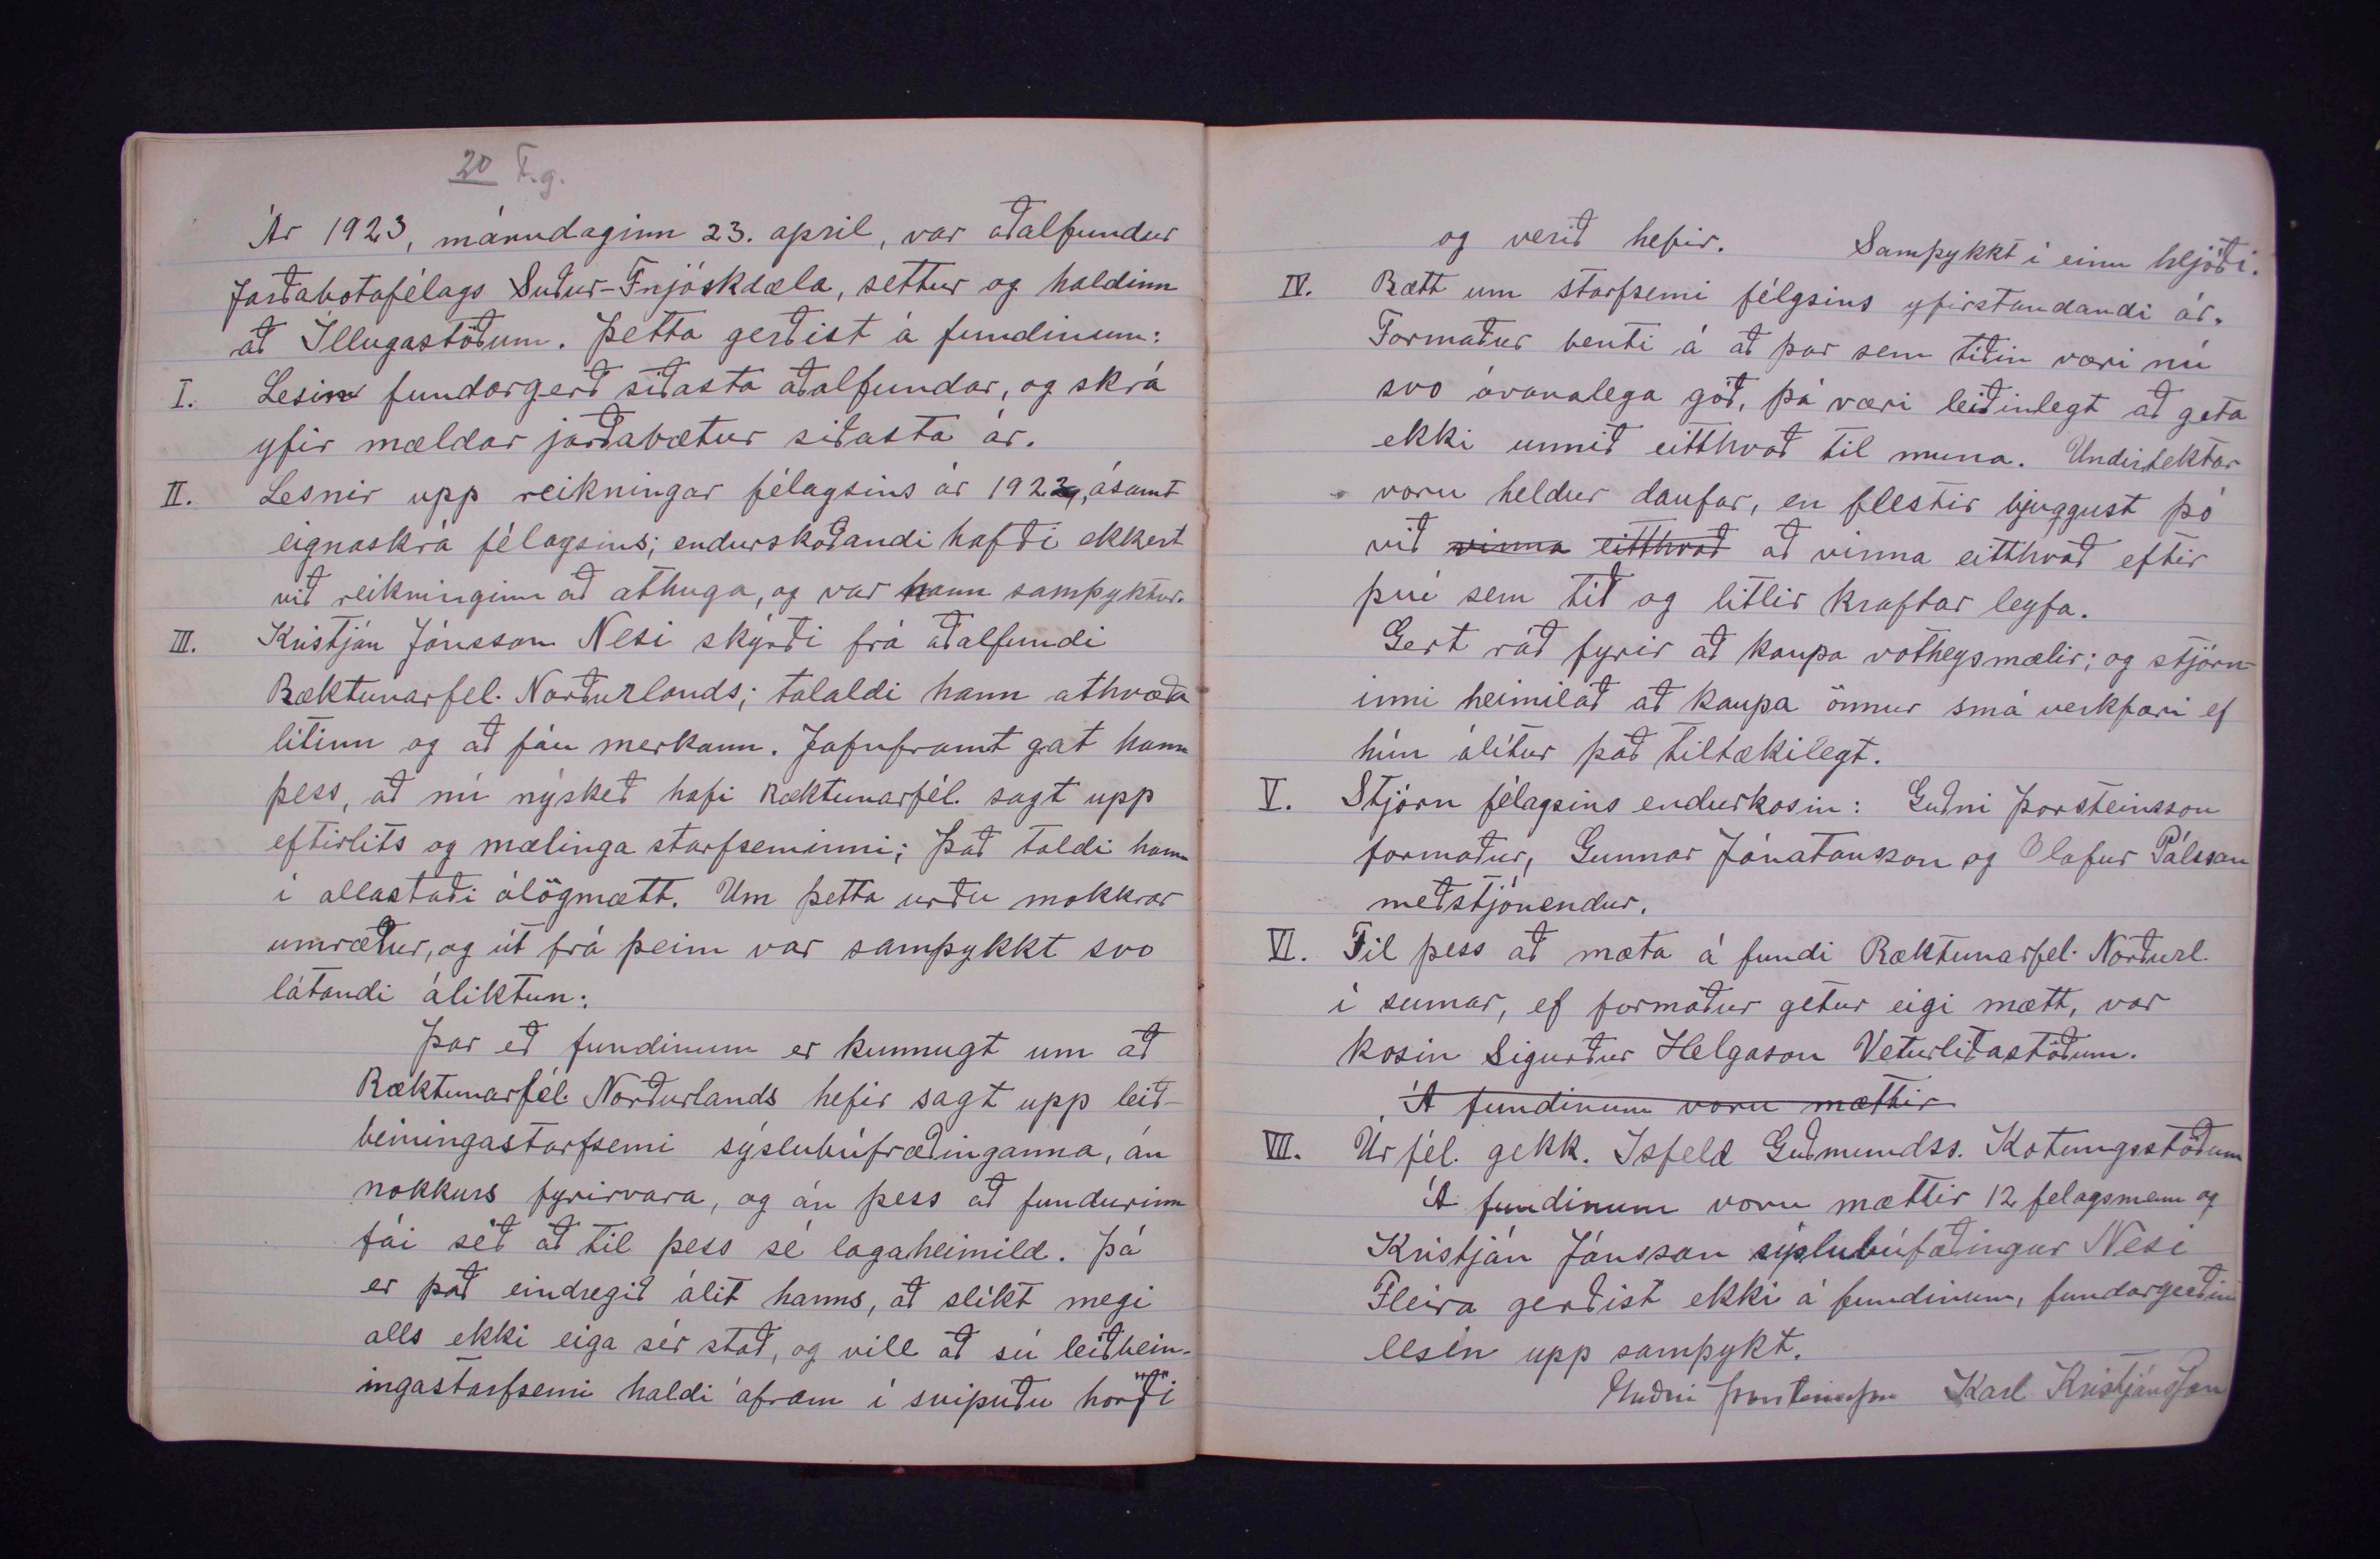 20 F.g.
Ár 1923, mánudaginn 23. april, var aðalfundur
Jarðabotafélags Suður-Fnjóskdæla, settur og haldinn
að Illugastöðum. Þetta gerðist á fundinum:
I. Lesin fundargerð síðasta aðalfundar, og skrá
yfir mældar jarðabætur síðasta ár.
II. Lesnir upp reikningar félagsins ár 1922, ásamt
eignaskrá félagsins; endurskoðandi hafði ekkert
við reikninginn að athuga, og var hann samþyktur.
III. Kristján Jónsson Nesi skýrði frá aðalfundi
Ræktunarfel. Norðurlands; talaldi hann athvæða
lítinn og að fáu merkann. Jafnframt gat hann
þess, að nú nýskeð hafi Ræktunarfél. sagt upp
eftirlits og mælinga starfseminni; Það taldi hann
í allastaði ólögmætt. Um þetta urðu nokkrar
umræður, og út frá þeim var samþykkt svo
látandi áliktun:
Þar eð fundinum er kunnugt um að
Ræktunarfél. Norðurlands hefir sagt upp leið-
beiningastarfsemi sýslubúfræðinganna, án
nokkurs fyrirvara, og án þess að fundurinn
fái séð að til þess sé lagaheimild. Þá
er það eindregið álit hanns, að slíkt megi
alls ekki eiga sér stað, og vill að sú leiðbein-
ingastarfsemi haldi áfram í svipuðu horfi
og verið hefir. Samþykkt í einu hljóði.
IV. Rætt um starfsemi félgsins yfirstandandi ár.
Formaður benti á að þar sem tíðin væri nú
svo óvanalega góð, þá væri leiðinlegt að geta
ekki unnið eitthvað til muna. Undirtektar
voru heldur daufar, en flestir bjuggust þó
við vinna eitthvað að vinna eitthvað eftir
því sem tíð og litlir kraftar leyfa.
Gert ráð fyrir að kaupa votheysmælir; og stjórn-
inni heimilað að kaupa önnur smá verkfæri ef
hún álítur það tiltækilegt.
V. Stjórn félagsins endurkosin: Guðni Þorsteinsson
formaður, Gunnar Jónatansson og Olafur Pálsson
meðstjónendur.
VI. Til þess að mæta á fundi Ræktunarfel. Norðurl.
í sumar, ef formaður getur eigi mætt, var
kosin Sigurður Helgason Veturliðastöðum.
Á fundinum voru mættir
VII. Úr fél. gekk. Isfeld Guðmundss. Kotungsstöðum
Á fundinum voru mættir 12 felagsmenn og
Kristján Jónsson sýslubúfæðingur Nesi
Fleira gerðist ekki á fundinum, fundargerðin
lesin upp samþykt.
Guðni Þorsteinsson Karl Kristjánsson